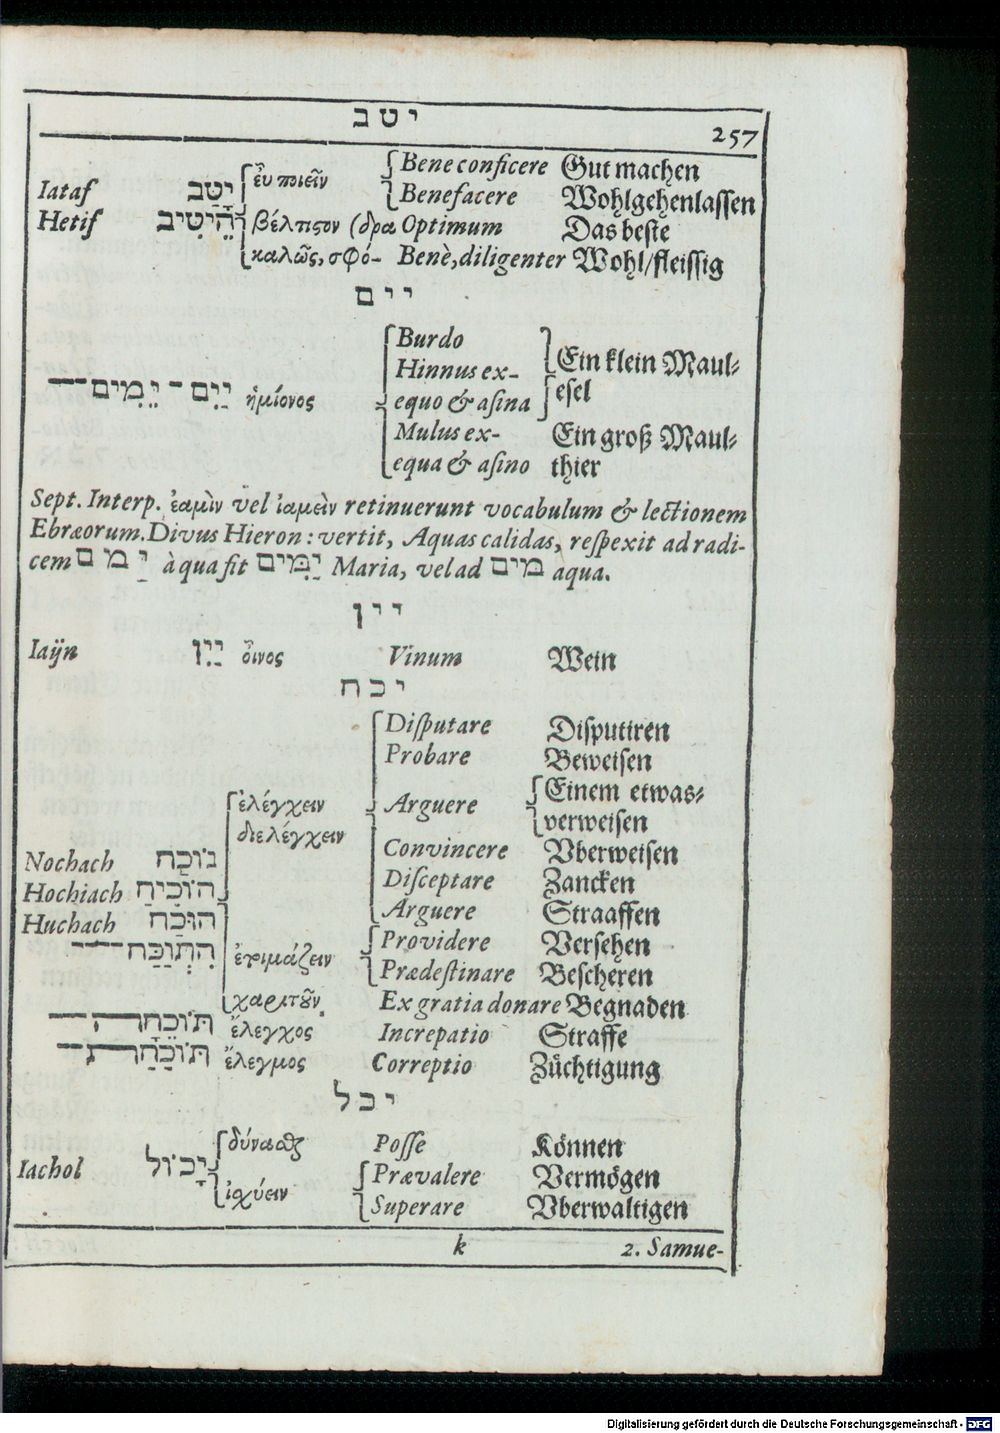 יטב
257
Iataf יָטַב εὖ ποιεῖν Bene conficere Gut machen
Benefacere Wohlgehenlassen
Hetif הֵיטִיב βέλτιϛον (δρα Optimum Das beste
καλῶς, σφό- Benè, diligenter Wohl/fleissig
יים
Burdo Ein klein Maul-
Hinnus ex- esel
יַיִם־יֵמִים ἡμίονος equo & asina
Mulus ex- Ein groß Maul-
equa & asino thier
Sept. Interp. ἐαμὶν vel ἰαμεὶν retinuerunt vocabulum & lectionem
Ebræorum. Divus Hieron: vertit, Aquas calidas, respexit ad radi-
cem יַמם à qua fit יַמִּים Maria, vel ad מים aqua.
יין
Iaijn יַיִן οἶνος Vinum Wein
יכח
Disputare Disputiren
Probare Beweisen
ἐλέγχειν Arguere Einem etwas-
διελέγχειν verweisen
Nochach נוֹכַח Convincere Vberweisen
Hochiach הוֹכִיחַ Disceptare Zancken
Huchach הוּכַח Arguere Straaffen
הִתְוַכַּח ἑτοιμάζειν Providere Versehen
Prædestinare Bescheren
χαριτοῦν Ex gratia donare Begnaden
תּוֹכֵחָה ἔλεγχος Increpatio Straffe
תּוֹכַחַת ἔλεγμος Correptio Züchtigung
יכל
Iachol יָכוֹל δύναϑζ Posse Können
ἰσχύειν Prævalere Vermögen
Superare Vberwaltigen
k 2. Samue-
Digitalisierung gefördert durch die Deutsche Forschungsgemeinschaft - DFG